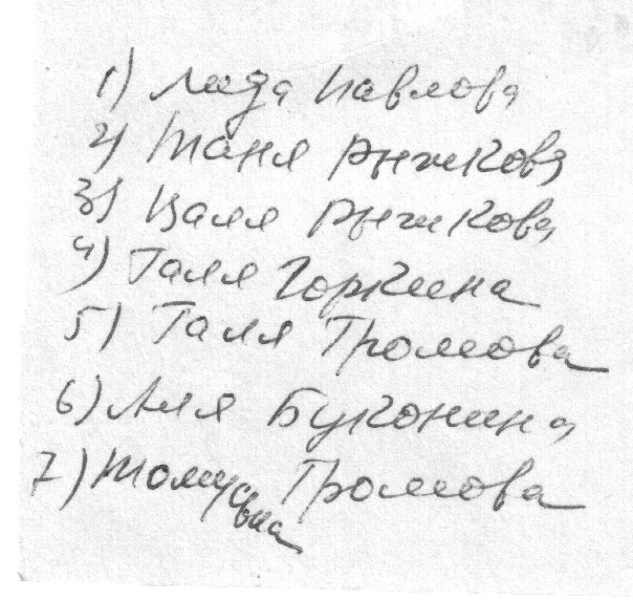 1) Лида Павлова
2) Таня Рыжкова
3) Валя Рыжкова
4) Галя Горкина
5) Галя Громова
6) Аля Буконина
7) Громова